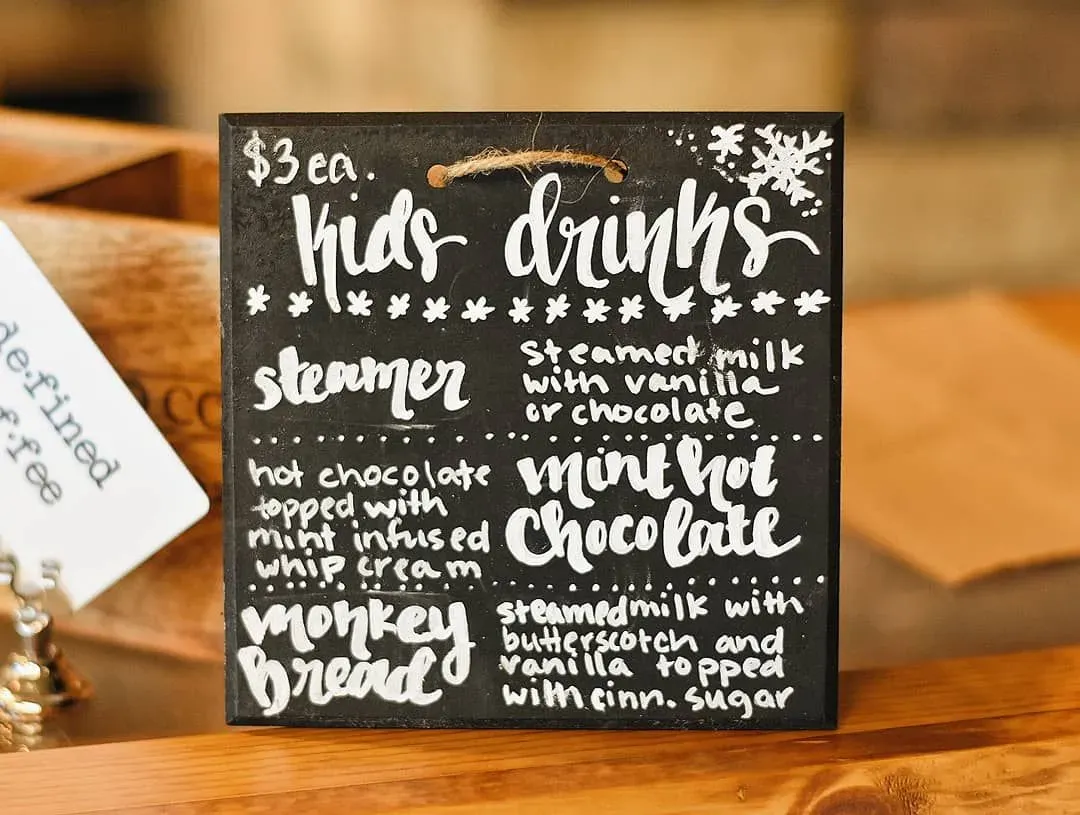 $3 ea.
kids drinks
steamer
steamed milk
with vanilla
or chocolate
hot chocolate
topped with
mint infused
whip cream
mint hot
chocolate
monkey
Bread
steamed milk with
butterscotch and
vanilla topped
with cinn. sugar
de·fined
f·fee